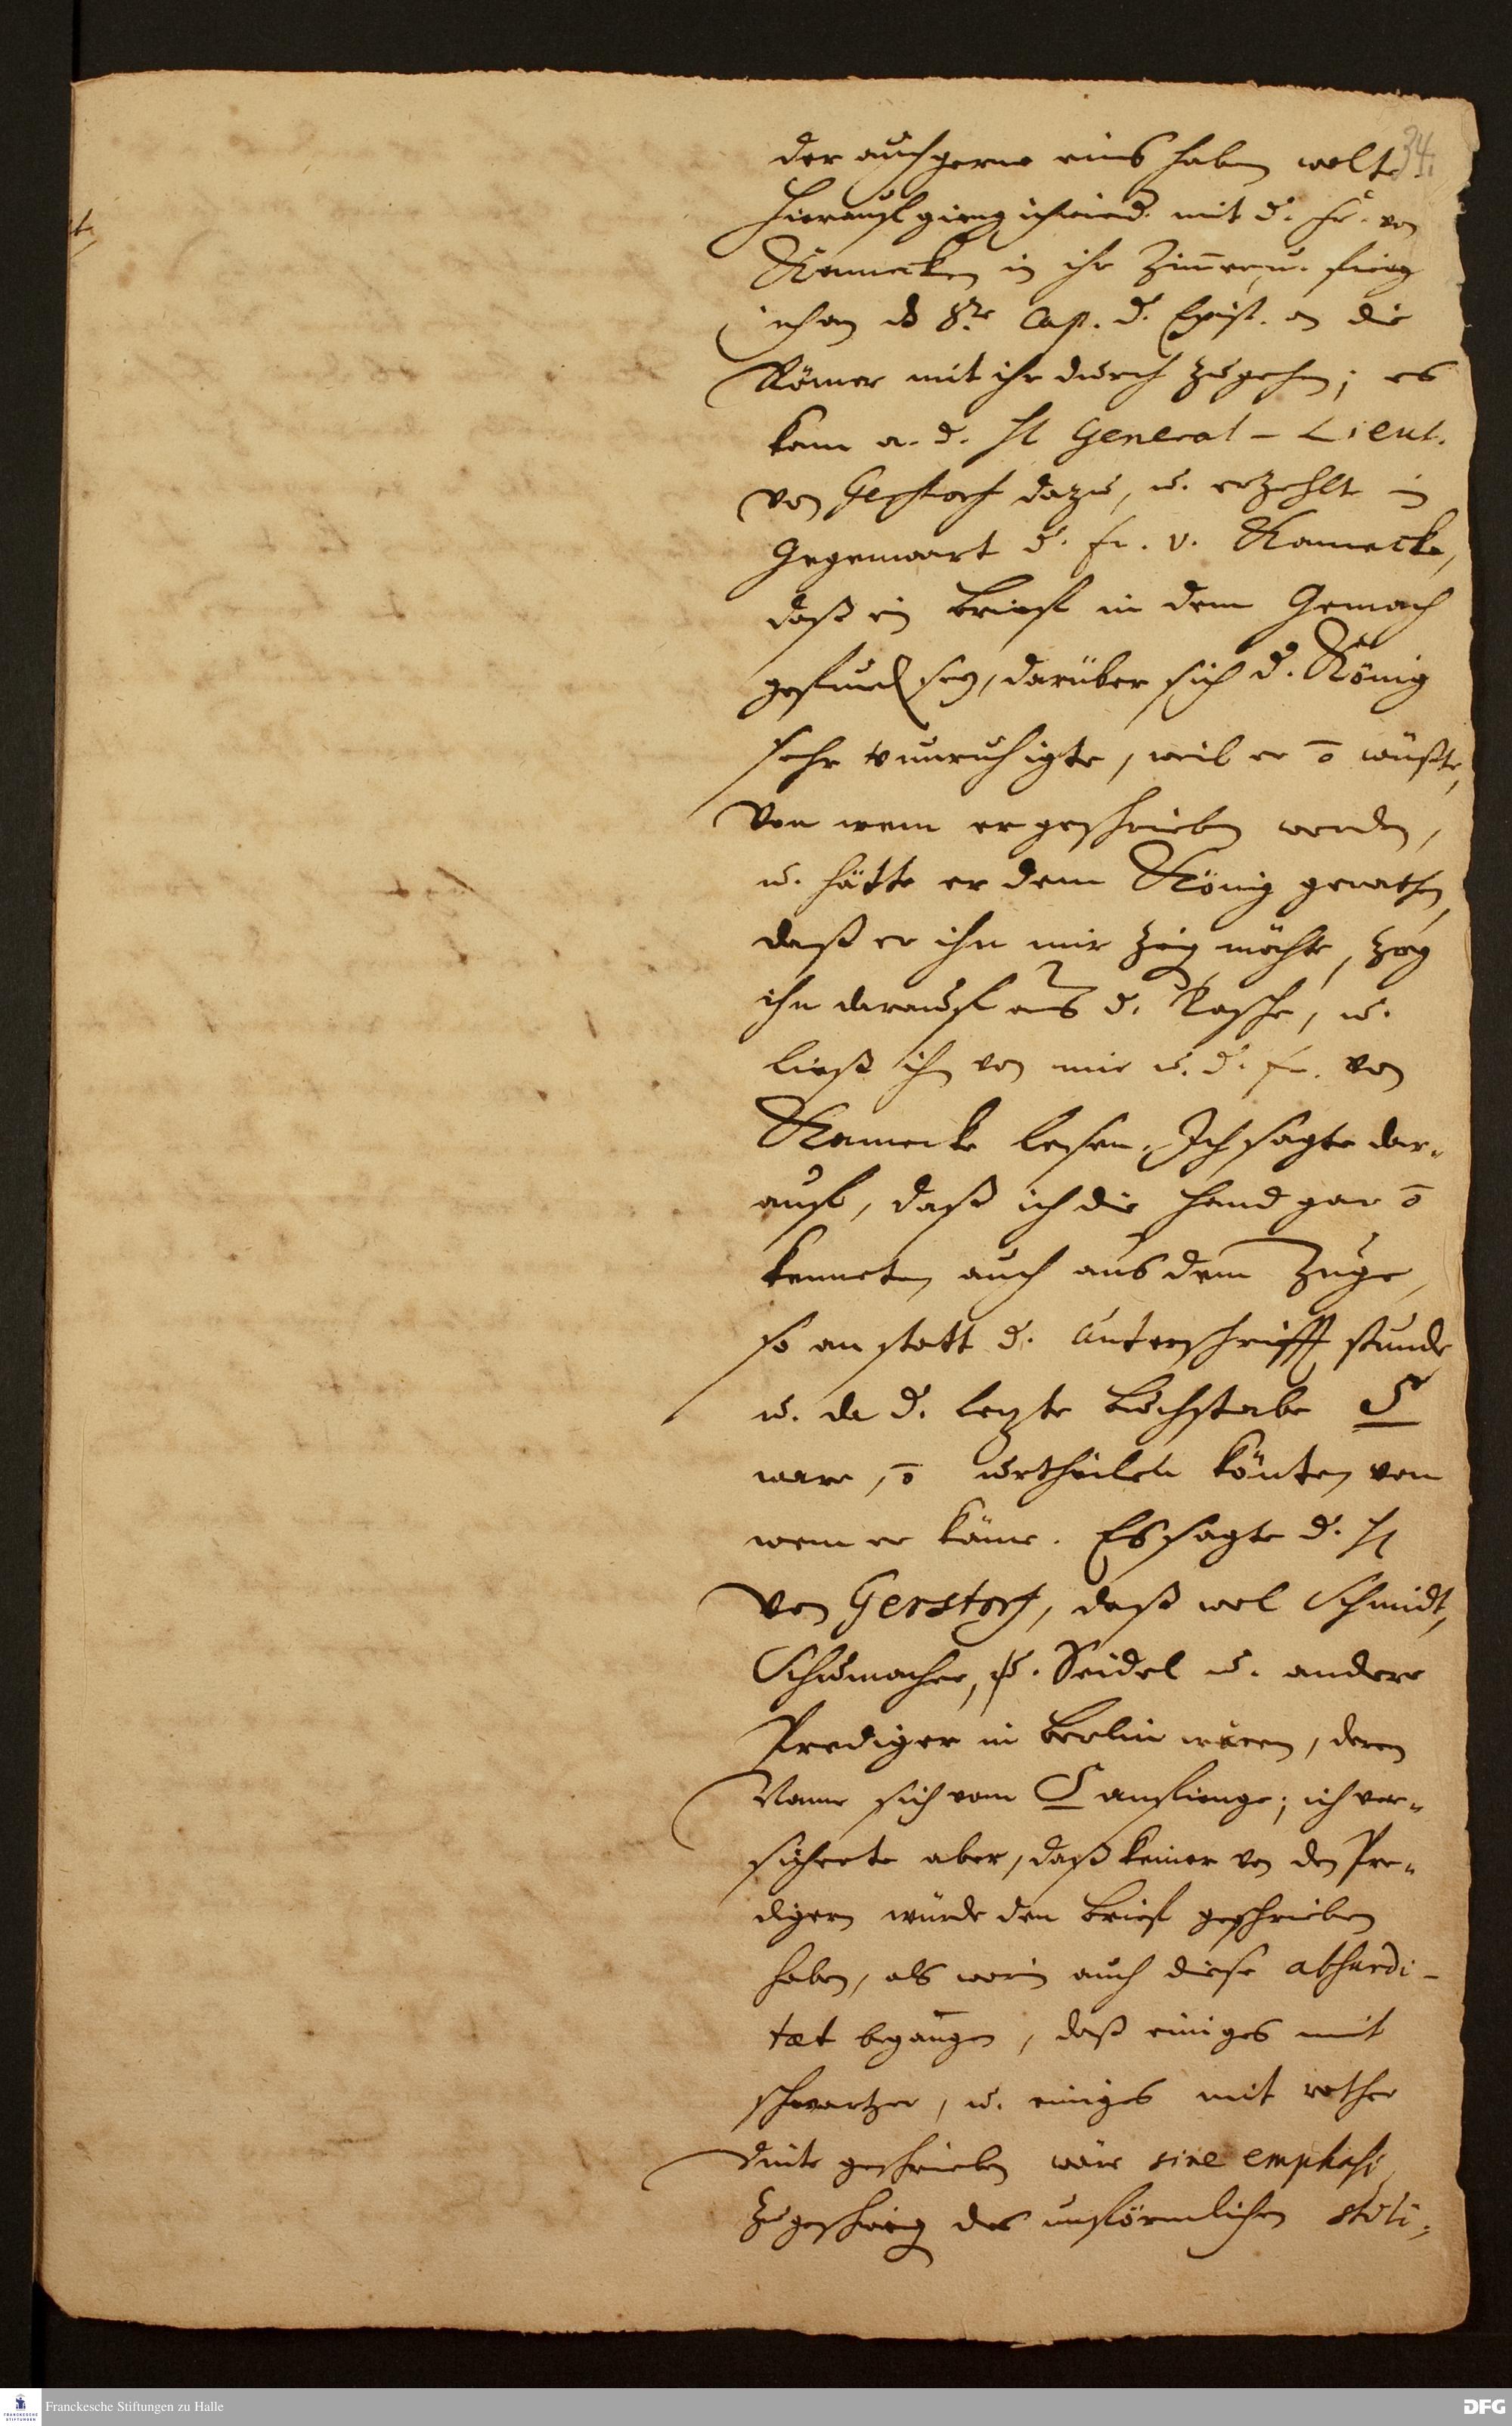 34.
der auch gerne eins haben wolte
Hierauf gieng ich wied. mit d. Fr. von
Kamecken in ihr Zimmer, u. fieng
ich an das 8te Cap. d. Epist. an die
Römer mit ihr durch zugehen; es
kam a. d. H General-Lieut.
von Gerstorf dazu, u. erzehlte in
Gegenwart d. Fr. v. Kamecke,
daß ein Brief in dem Gemach
gefund sey, darüber sich d. König
sehr verunruhigte, weil er ō wüßte,
von wem er geschrieben worden,
u. hätte er dem König gerathen,
daß er ihn mir zeig möchte, zog
ihn darauf aus d. Tasche, u.
ließ ihn von mir u. d. Fr. von
Kamecke lesen. Ich sagte dar-
auf, daß ich die Hand gar ō
kennete, auch aus dem Zuge,
so an statt d. Unterschrifft stunde
u. da d. letzte Buchstabe S
ware, ō urtheilen könten von
wem er käme. Es sagte d. H
von Gerstorf, daß wol Schmidt,
Schumacher, Seidel u. andere
Prediger in Berlin wären, deren
Name sich vom S anfienge; ich ver-
sicherte aber, daß keiner von den Pre-
digern würde den Brief geschrieben
haben, als worin auch diese absurdi-
tæt begangen, daß einiges mit
schwartzer, u. einiges mit rother
Dinte geschrieben wäre sine emphasi
zugeschweig des unförmlichen stili,
t,
Franckesche Stiftungen zu Halle
DFG